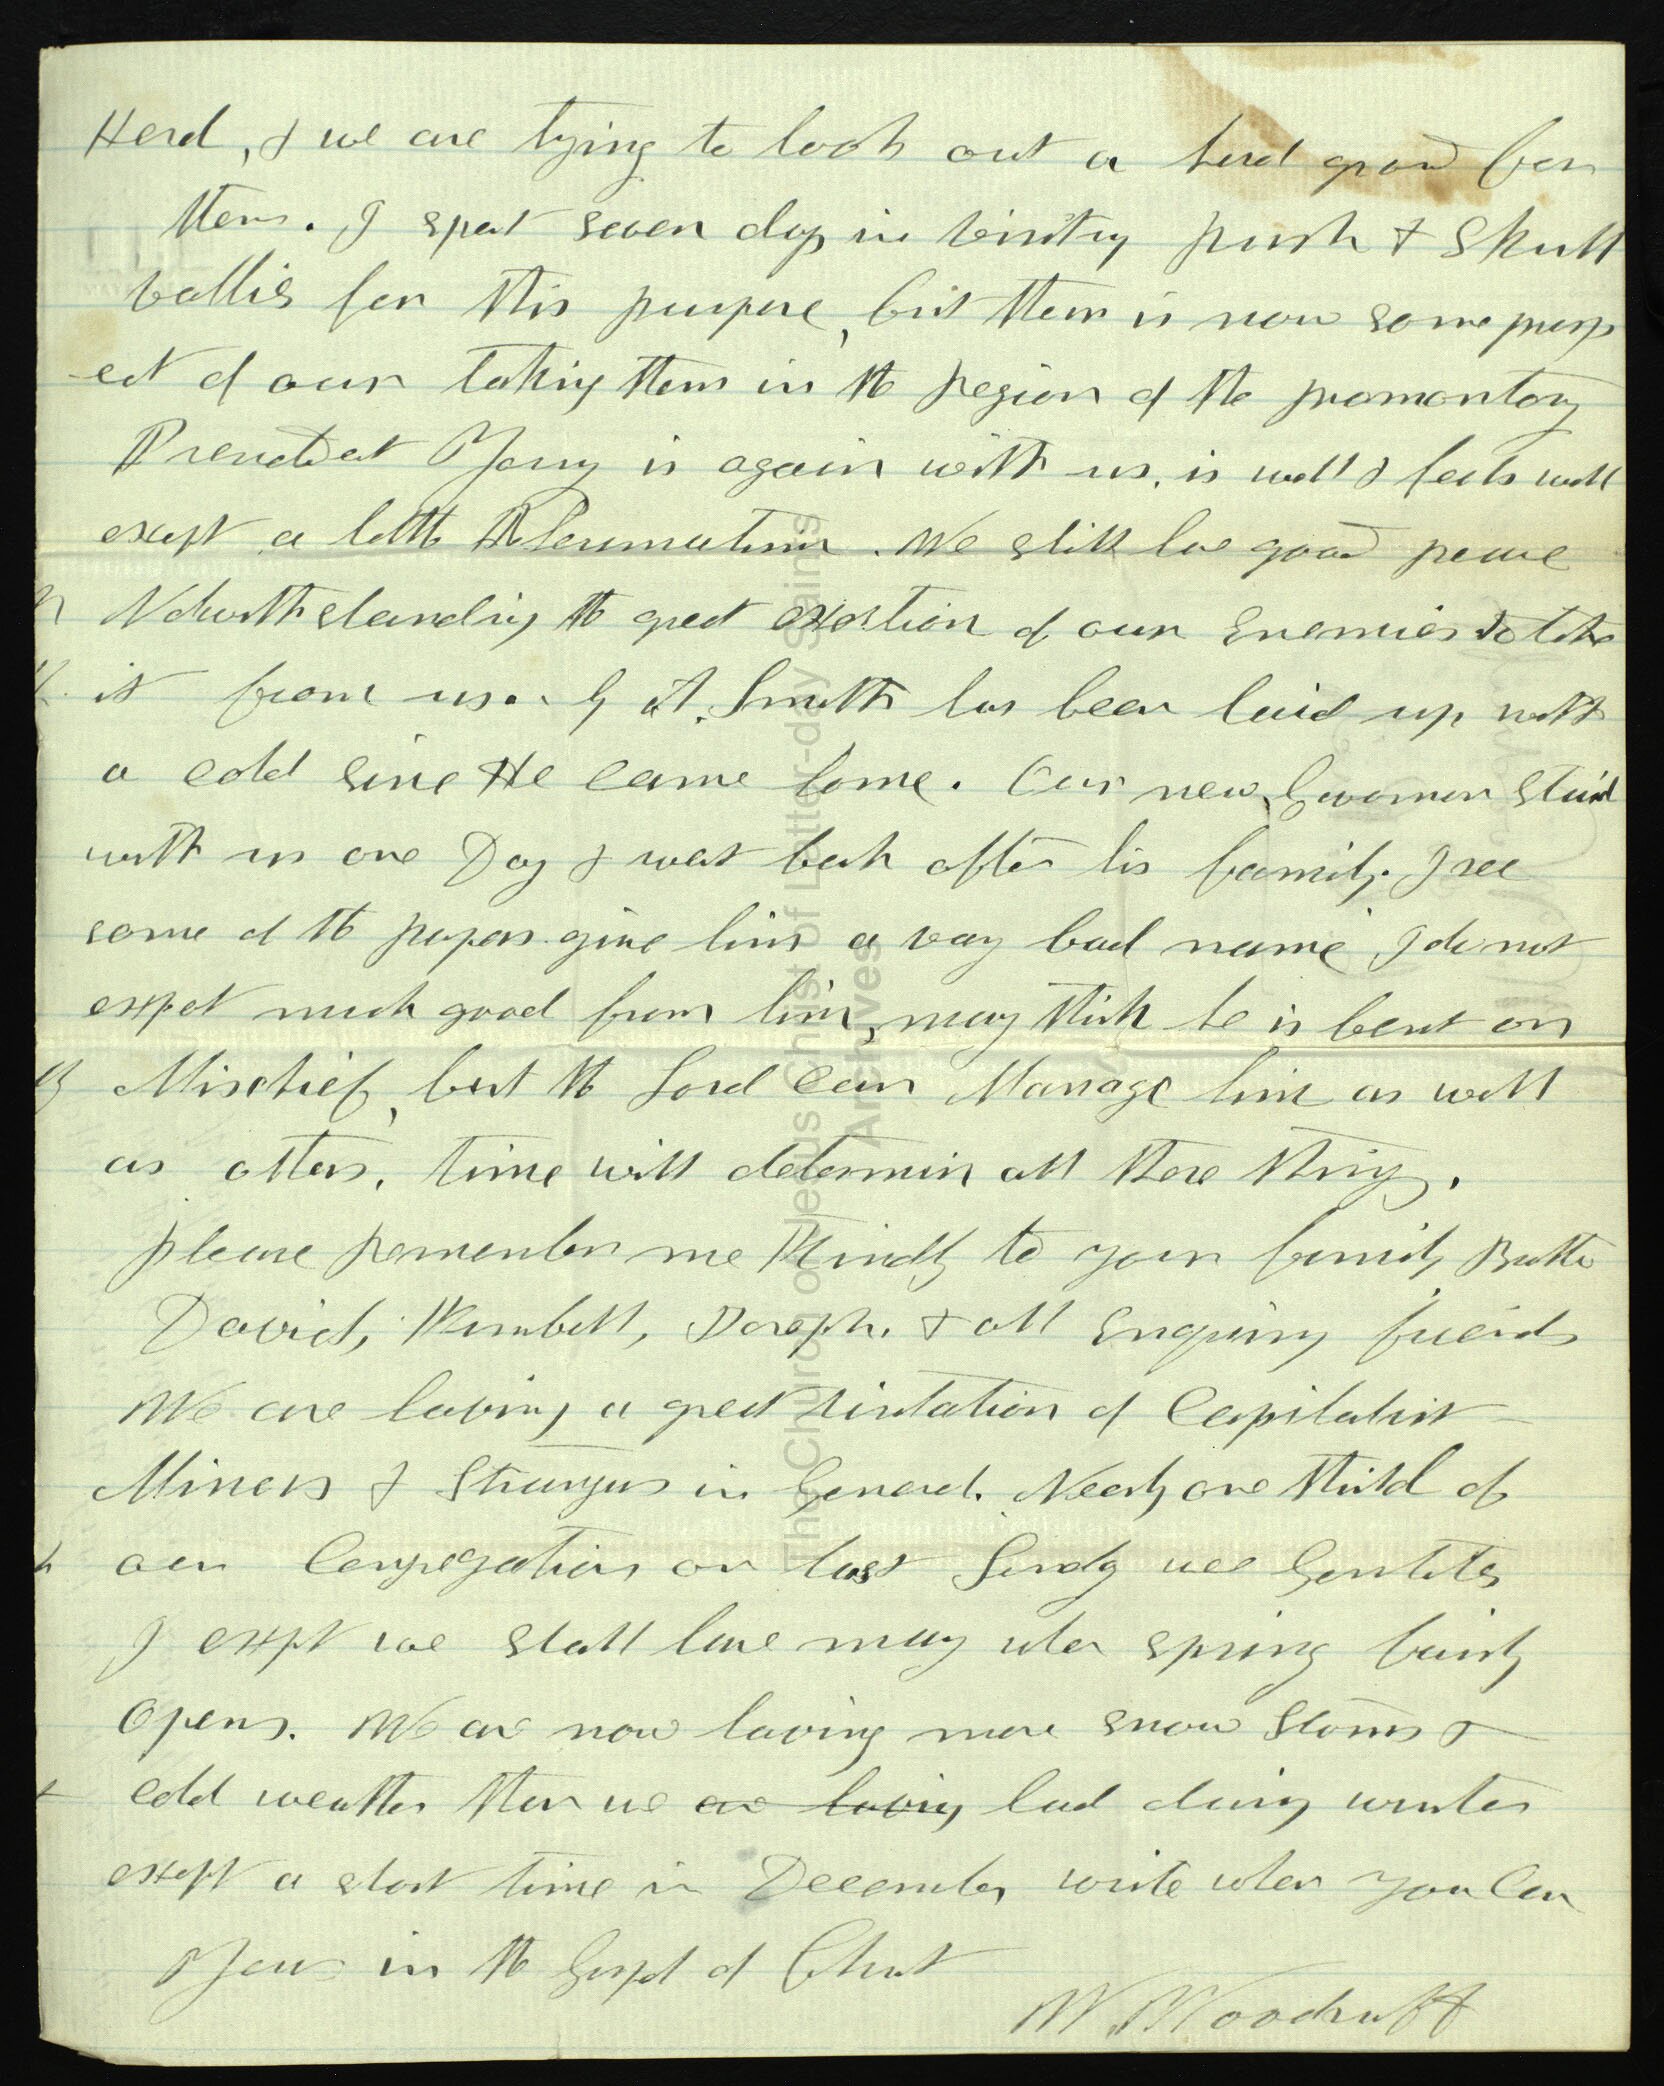 Herd, & we are trying to look out a herd ground for
them. I spent seven days in visiting Rush & Skull
vallies for this purpose, but there is now some prosp
-ect of our taking them in the region of the promontory
President Young is again with us, is well & feels well
except a little Rheumatism. We still have good peace
Notwithstanding the great exertion of our Enemies to take
it from us. G A. Smith has been laid up with
a cold since He came home. Our new Governor staid
with us one Day & went back after his family. I see
some of the papers give him a very bad name I do not
expect much good from him, many think he is bent on
Mischief, but the Lord Can Manage him as well
as others, time will determin all these things.
please remember me Kindly to your family Brother
David, Kimball, Joseph. & all Enquiring friends
We are having a great visitation of Capitalist
Miners & Strangers in General. Nearly one third of
our Congregation on last Sunday were Gentiles
I expect we shall have many when spring fairly
Opens. We are now having more snow storms &
cold weather then we are having had during winter
except a short time in December write when you Can
Yours in the Gospel of Christ
W. Woodruff
The Church of Jesus Christ of Latter-day Saints
Archives